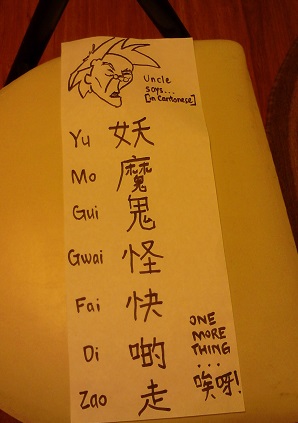 Uncle
says...
[in Cantonese]
Yu 妖
Mo 魔
Gui 鬼
Gwai 怪
Fai 快
Di 啲
Zao 走
ONE
MORE
THING
...
唉呀!